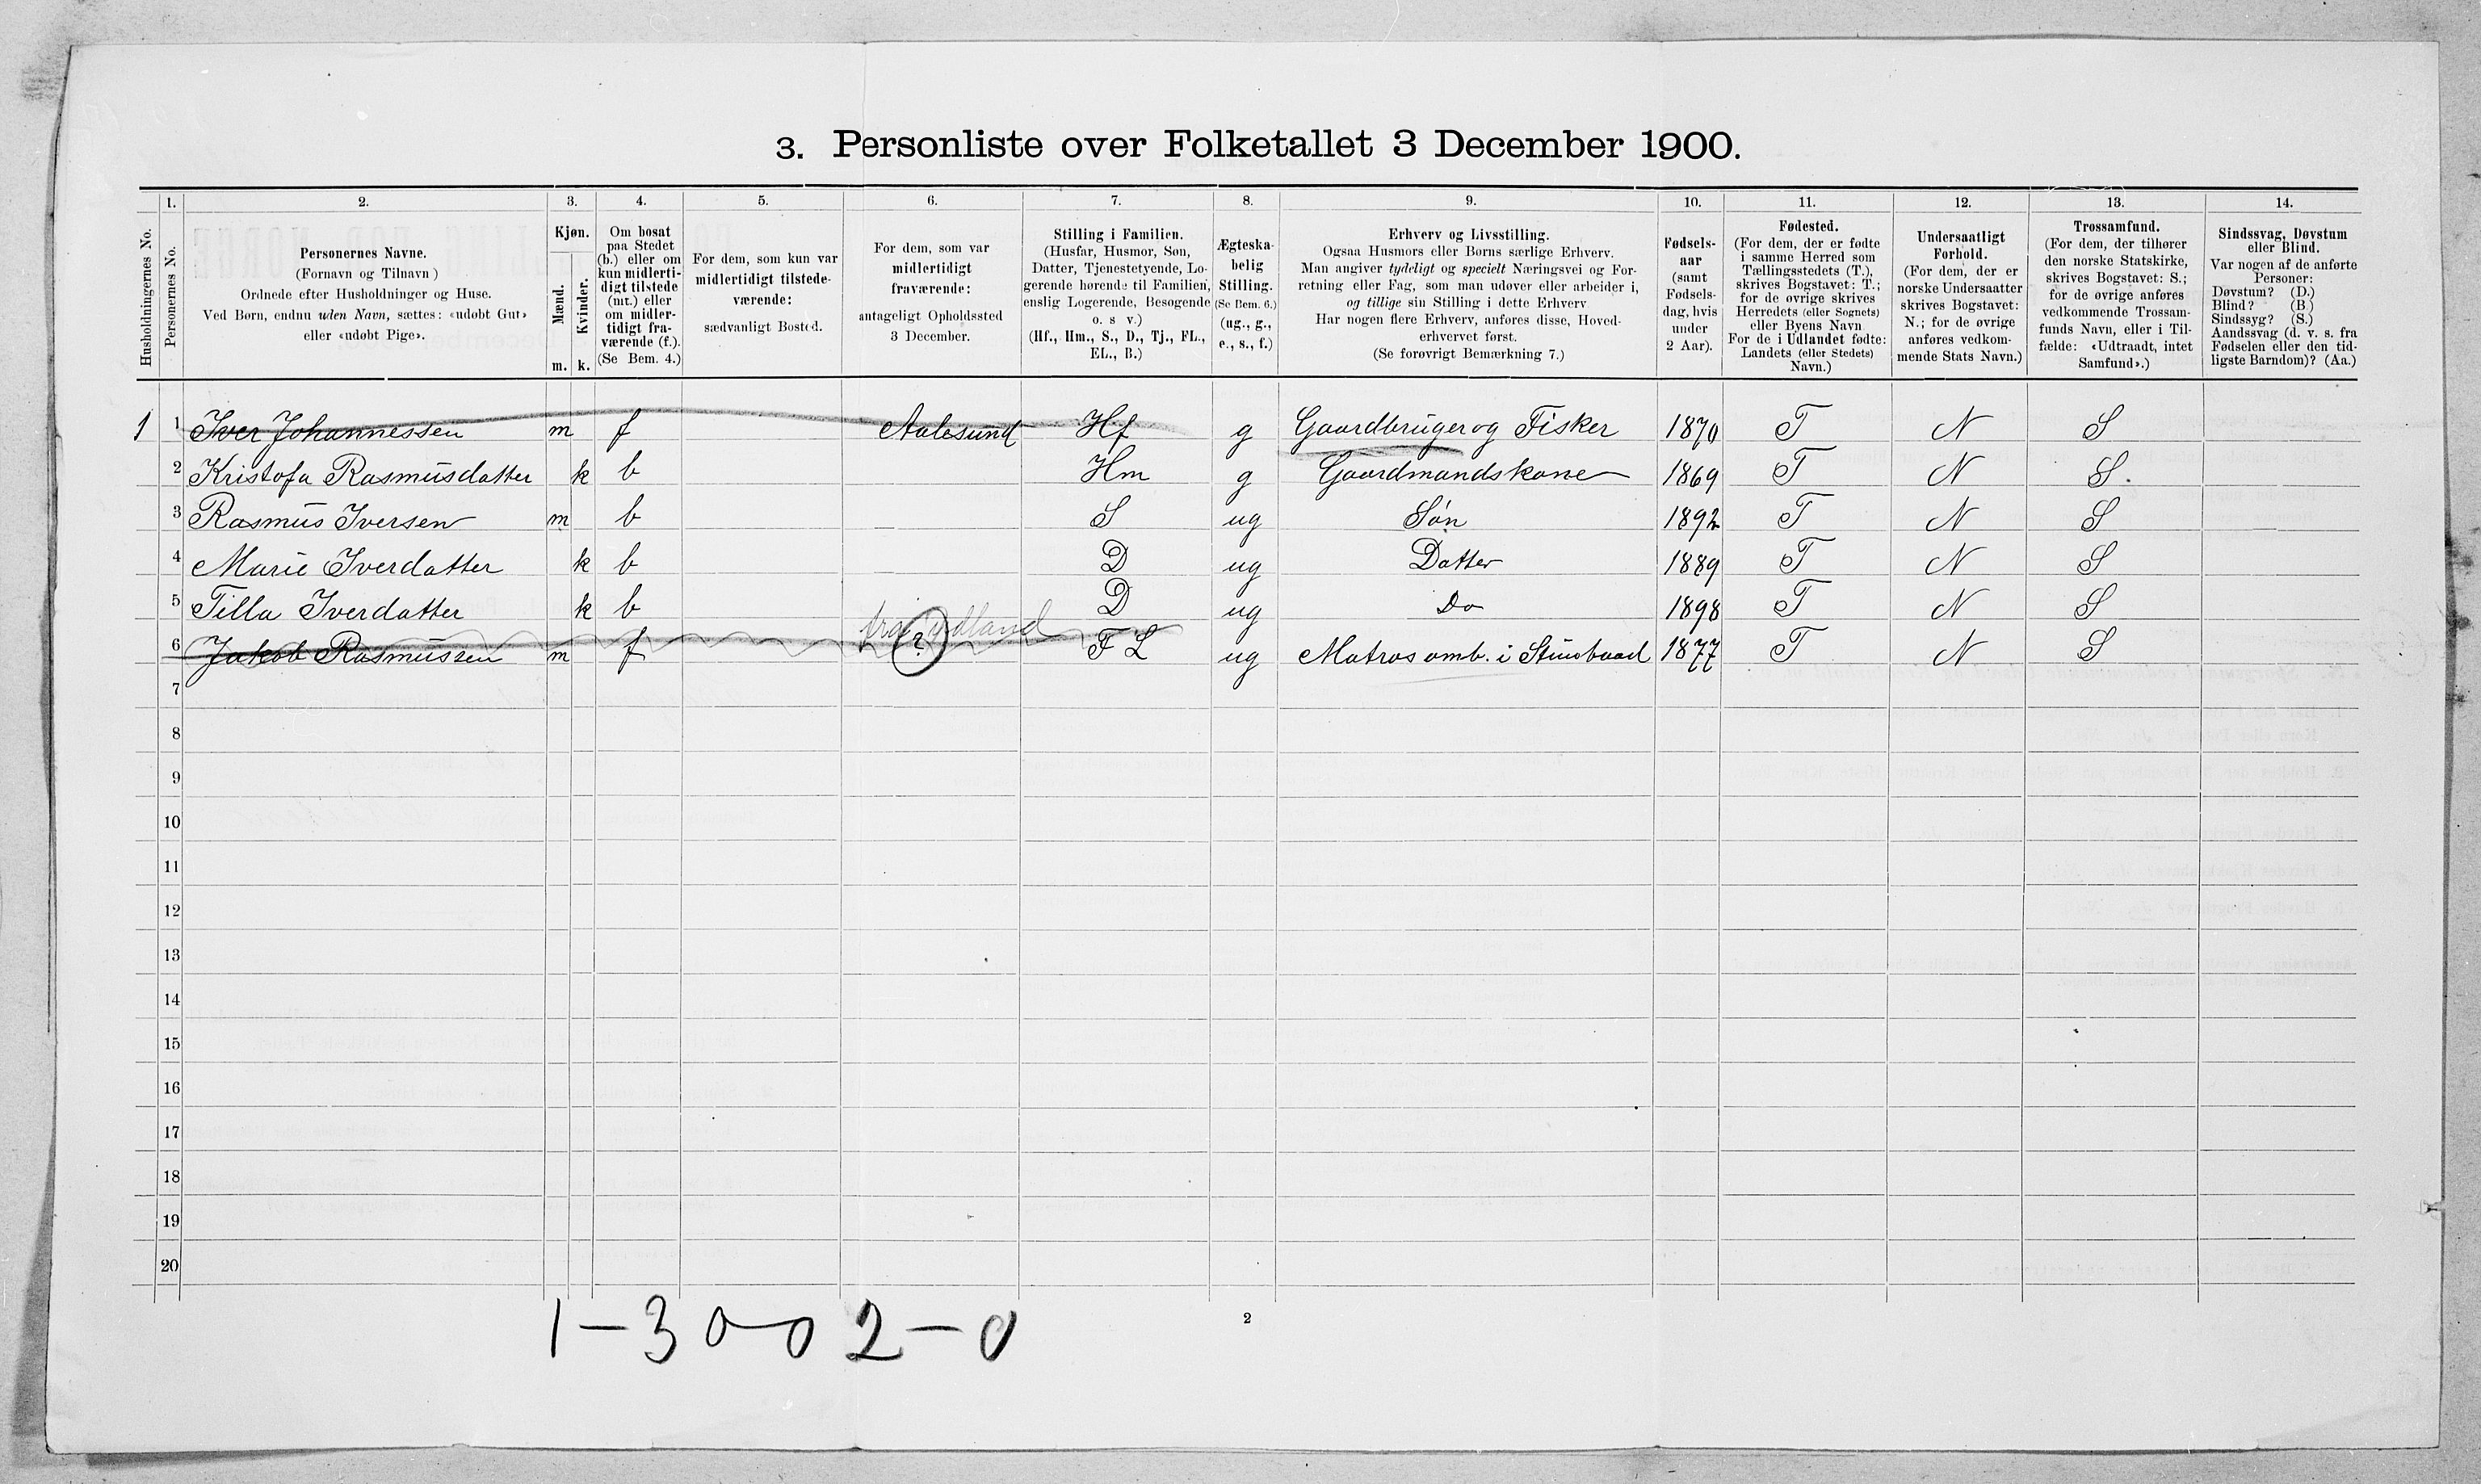 3. Personliste over Folketallet 3 December 1900.
Husholdningernes No.
1. Personernes No.
2. Personernes Navne.
(Fornavn og Tilnavn)
Ordnede efter Husholdninger og Huse.
Ved Børn, endnu uden Navn, sættes: «udøbt Gut»
eller «udøbt Pige».
3. Kjøn.
Mænd. m.
Kvinder. k.
4. Om bosat
paa Stedet
(b.) eller om
kun midlerti-
digt tilstede
(mt.) eller
om midler-
tidigt fra-
værende (f.).
(Se Bem. 4.)
5. For dem, som kun var
midlertidigt tilstede-
værende:
sædvanligt Bosted.
6. For dem, som var
midlertidigt
fraværende:
antageligt Opholdssted
3 December.
7. Stilling i Familien.
(Husfar, Husmor, Søn,
Datter, Tjenestetyende, Lo-
gerende hørende til Familien,
enslig Logerende, Besøgende
o. s v.)
(Hf., Hm., S., D., Tj., FL.,
EL., B.)
8. Ægteska-
belig
Stilling.
(Se Bem. 6.)
(ug., g.,
e., s., f.)
9. Erhverv og Livsstilling.
Ogsaa Husmors eller Børns særlige Erhverv.
Man angiver tydeligt og specielt Næringsvei og For-
retning eller Fag, som man udøver eller arbeider i,
og tillige sin Stilling i dette Erhverv
Har nogen flere Erhverv, anføres disse, Hoved-
erhvervet først.
(Se forøvrigt Bemærkning 7.)
10. Fødsels-
aar
(samt
Fødsels-
dag, hvis
under
2 Aar).
11. Fødested.
(For dem, der er fødte
i samme Herred som
Tællingsstedets (T.),
skrives Bogstavet: T.;
for de øvrige skrives
Herredets (eller Sognets)
eller Byens Navn
For de i Udlandet fødte:
Landets (eller Stedets)
Navn.)
12. Undersaatligt
Forhold.
(For dem, der er
norske Undersaatter
skrives Bogstavet:
N.; for de øvrige
anføres vedkom-
mende Stats Navn.)
13. Trossamfund.
(For dem, der tilhører
den norske Statskirke,
skrives Bogstavet: S.;
for de øvrige anføres
vedkommende Trossam-
funds Navn, eller i Til-
fælde: «Udtraadt, intet
Samfund».)
14. Sindssvag, Døvstum
eller Blind.
Var nogen af de anførte
Personer:
Døvstum? (D.)
Blind? (B)
Sindssyg? (S.)
Aandssvag (d. v. s. fra
Fødselen eller den tid-
ligste Barndom)? (Aa.)
1 1 Iver Johannessen m f Aalesund Hf g Gaardbruger og Fisker 1870 T N S
2 Kristofa Rasmusdatter k b Hm g Gaardmandskone 1869 T N S.
3 Rasmus Iversen m b S ug Søn 1892 T N S
4 Marie Iverdatter k b D ug Datter 1889 T N S
5 Tilla Iverdatter k b D ug Do 1898 T N S
6 Jakob Rasmussen m f ? FL ug Matros omb. i 1877 T N S
7
8
9
10
11
12
13
14
15
16
17
18
19
20
1 – 3 0 – 0 2 – 0
2